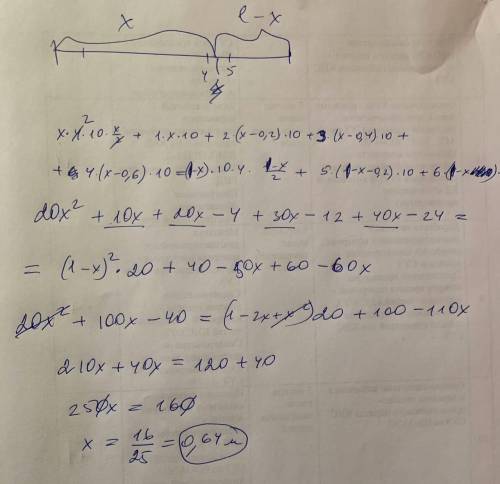 x l-x
4 5
x · 4 · 10 · x/2 + 1 · x · 10 + 2 · (x-0,2) · 10 + 3 · (x-0,4) 10 +
+ 4 · (x-0,6) · 10 = (1-x) · 10 · 4 · 1-x/2 + 5 · (1-x-0,2) · 10 + 6 (1-x
20x² + 10x + 20x - 4 + 30x - 12 + 40x - 24 =
= (1-x)² · 20 + 40 - 50x + 60 - 60x
20x² + 100x - 40 = (1-2x+x²) 20 + 100 - 110x
210x + 40x = 120 + 40
250x = 160
x = 16/25 = 0,64 м